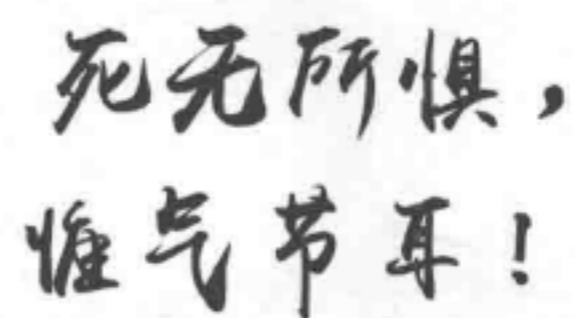 死无所惧，
惟气节耳！